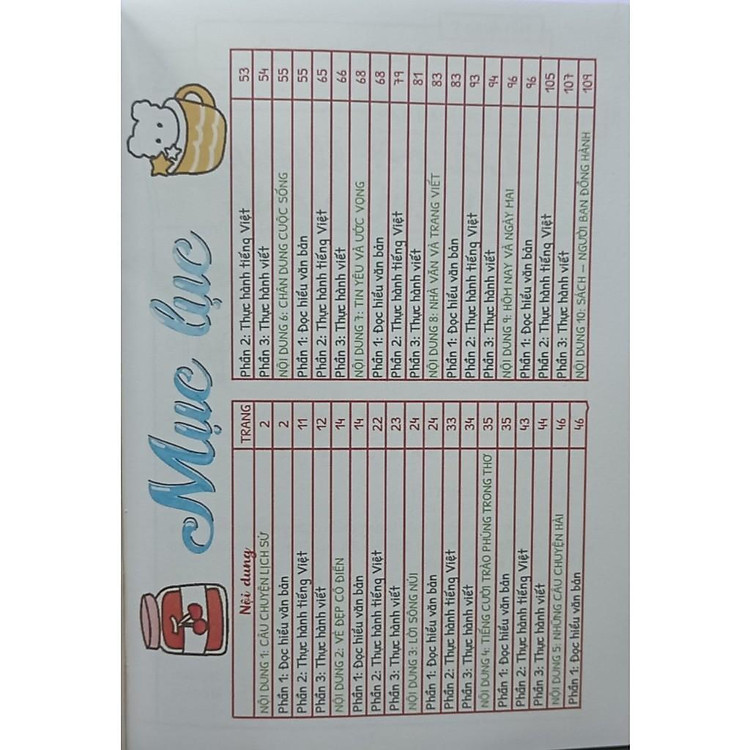 Mục lục
Nội dung TRANG
NỘI DUNG 1: CÂU CHUYỆN LỊCH SỬ 2
Phần 1: Đọc hiểu văn bản 2
Phần 2: Thực hành tiếng Việt 11
Phần 3: Thực hành viết 12
NỘI DUNG 2: VẺ ĐẸP CỔ ĐIỂN 14
Phần 1: Đọc hiểu văn bản 14
Phần 2: Thực hành tiếng Việt 22
Phần 3: Thực hành viết 23
NỘI DUNG 3: LỜI SÔNG NÚI 24
Phần 1: Đọc hiểu văn bản 24
Phần 2: Thực hành tiếng Việt 33
Phần 3: Thực hành viết 34
NỘI DUNG 4: TIẾNG CƯỜI TRÀO PHÚNG TRONG THƠ 35
Phần 1: Đọc hiểu văn bản 35
Phần 2: Thực hành tiếng Việt 43
Phần 3: Thực hành viết 44
NỘI DUNG 5: NHỮNG CÂU CHUYỆN HÀI 46
Phần 1: Đọc hiểu văn bản 46
Phần 2: Thực hành tiếng Việt 53
Phần 3: Thực hành viết 54
NỘI DUNG 6: CHÂN DUNG CUỘC SỐNG 55
Phần 1: Đọc hiểu văn bản 55
Phần 2: Thực hành tiếng Việt 65
Phần 3: Thực hành viết 66
NỘI DUNG 7: TIN YÊU VÀ ƯỚC VỌNG 68
Phần 1: Đọc hiểu văn bản 68
Phần 2: Thực hành tiếng Việt 79
Phần 3: Thực hành viết 81
NỘI DUNG 8: NHÀ VĂN VÀ TRANG VIẾT 83
Phần 1: Đọc hiểu văn bản 83
Phần 2: Thực hành tiếng Việt 93
Phần 3: Thực hành viết 94
NỘI DUNG 9: HÔM NAY VÀ NGÀY MAI 96
Phần 1: Đọc hiểu văn bản 96
Phần 2: Thực hành tiếng Việt 105
Phần 3: Thực hành viết 107
NỘI DUNG 10: SÁCH – NGƯỜI BẠN ĐỒNG HÀNH 109